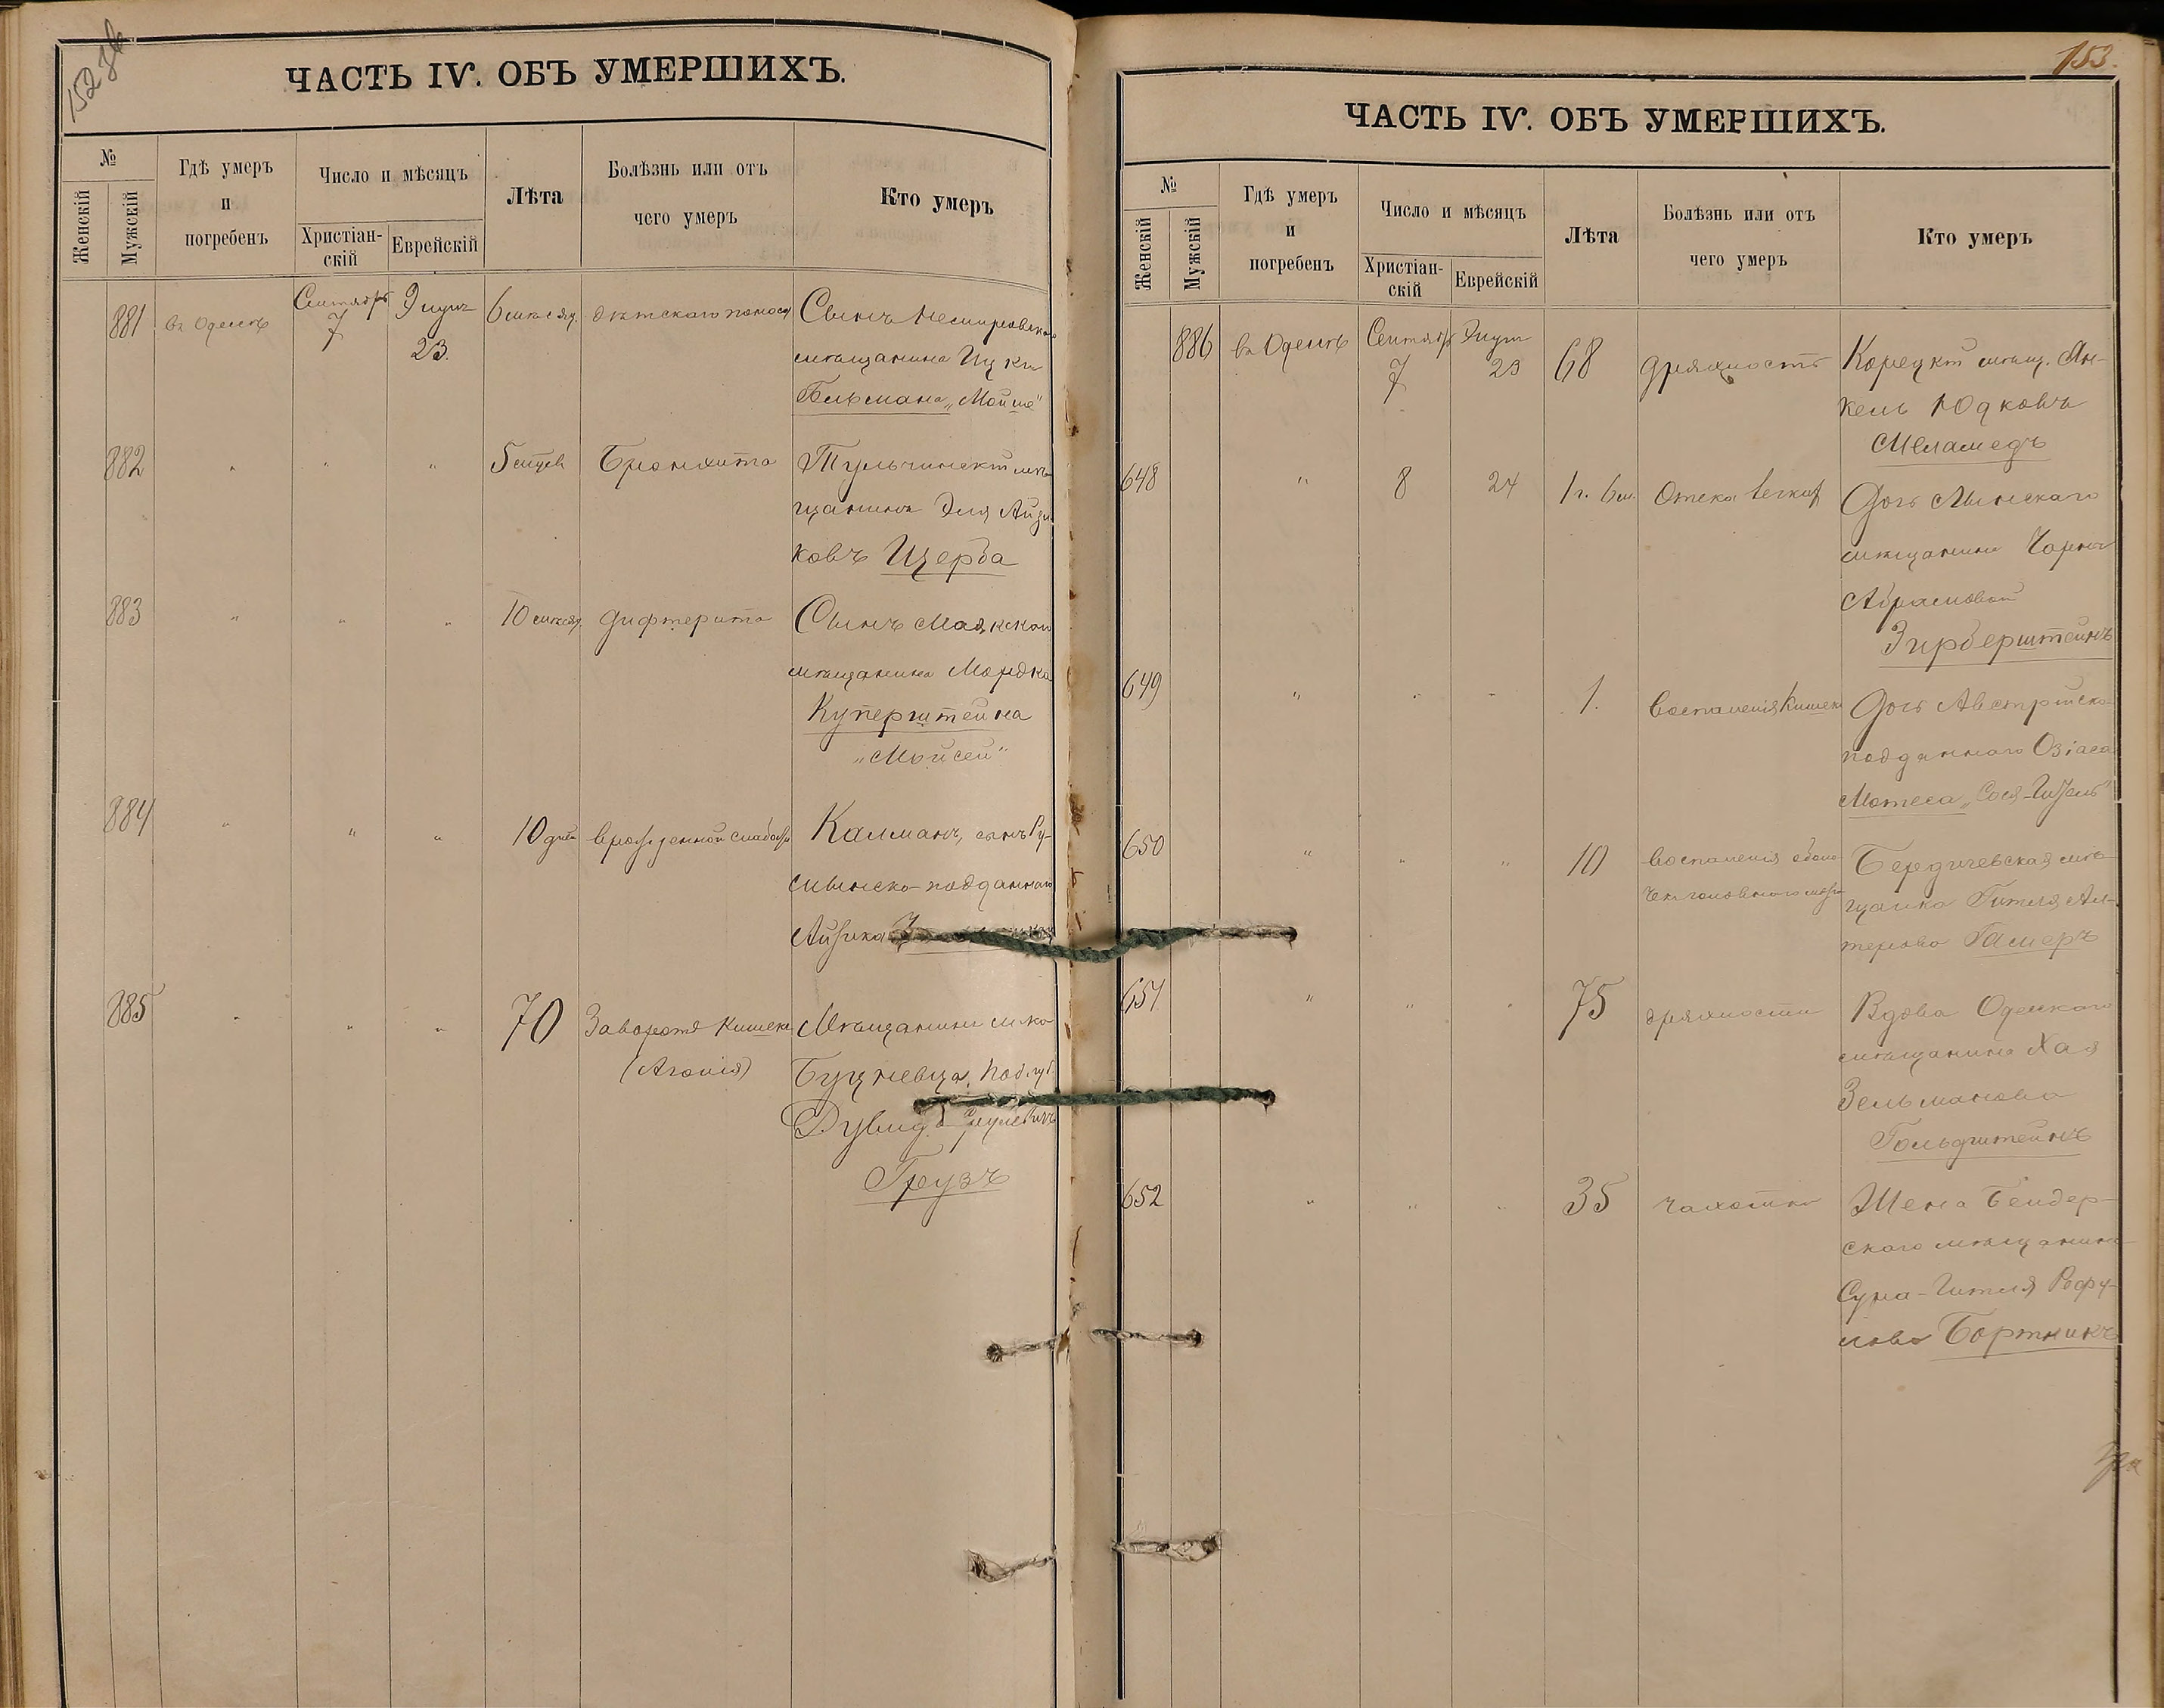 ЧАСТЬ IV. ОБЪ УМЕРШИХЪ.
№
Женскій
Мужскій
Гдѣ умеръ
и
погребенъ
Число и мѣсяцъ
Христіан-
скій
Еврейскій
Лѣта
Болѣзнь или отъ
чего умеръ
Кто умеръ
881 въ Одессѣ Сентябр 7 23. 6 мѣсяц. дѣтскаго поноса Сынъ Немировска
мѣщанина Ицки
Бельмана „Мойше"
882 " " " 5 Бронхита Тульчинскій мѣ-
щанинъ Эля Айзи
ковъ Щерба
883 " " " 10 мѣсяц. дифтерита Сынъ Маякскаго
мѣщанина Мордка
Куперштейна
„Мойсей"
884 " " " 10 дней врожденной слабости Калманъ, сынъ Ру-
мынско-подданнаго
Айзика
885 " " " 70 Заворота Кишекъ Мѣщанинъ м-ка
(Агонія)
Под. губ.
Дувид
Грузъ
153.
ЧАСТЬ IV. ОБЪ УМЕРШИХЪ.
№
Женскій
Мужскій
Гдѣ умеръ
и
погребенъ
Число и мѣсяцъ
Христіан-
скій
Еврейскій
Лѣта
Болѣзнь или отъ
чего умеръ
Кто умеръ
886 въ Одессѣ Сентябр 7 23 68 дряхлость Корецкій мѣщ. Ян-
кель Юдковъ
Меламедъ
648 " 8 24 1 г. 6 м. Отека легких Дочь Минскаго
мѣщанина Чарна
Абрамовой
Зирберштейнъ
649 " " " 1. Воспаленія Кишекъ Дочь Австрійско-
подданнаго Озіаса
Мотеса „Сося-Гизель"
650 " " " 10 воспаленія оболо-
чек головного мозга
Бердичевская мѣ-
щанка Гитля Ал-
терова Гамеръ
651 " " " 75 дряхлости Вдова Одесскаго
мѣщанина Хая
Зельманова
Гольдштейнъ
652 " " " 35 чахотки Жена Бендер-
скаго мѣщанина
Сура-Гитля Рафу-
лова Бортникъ